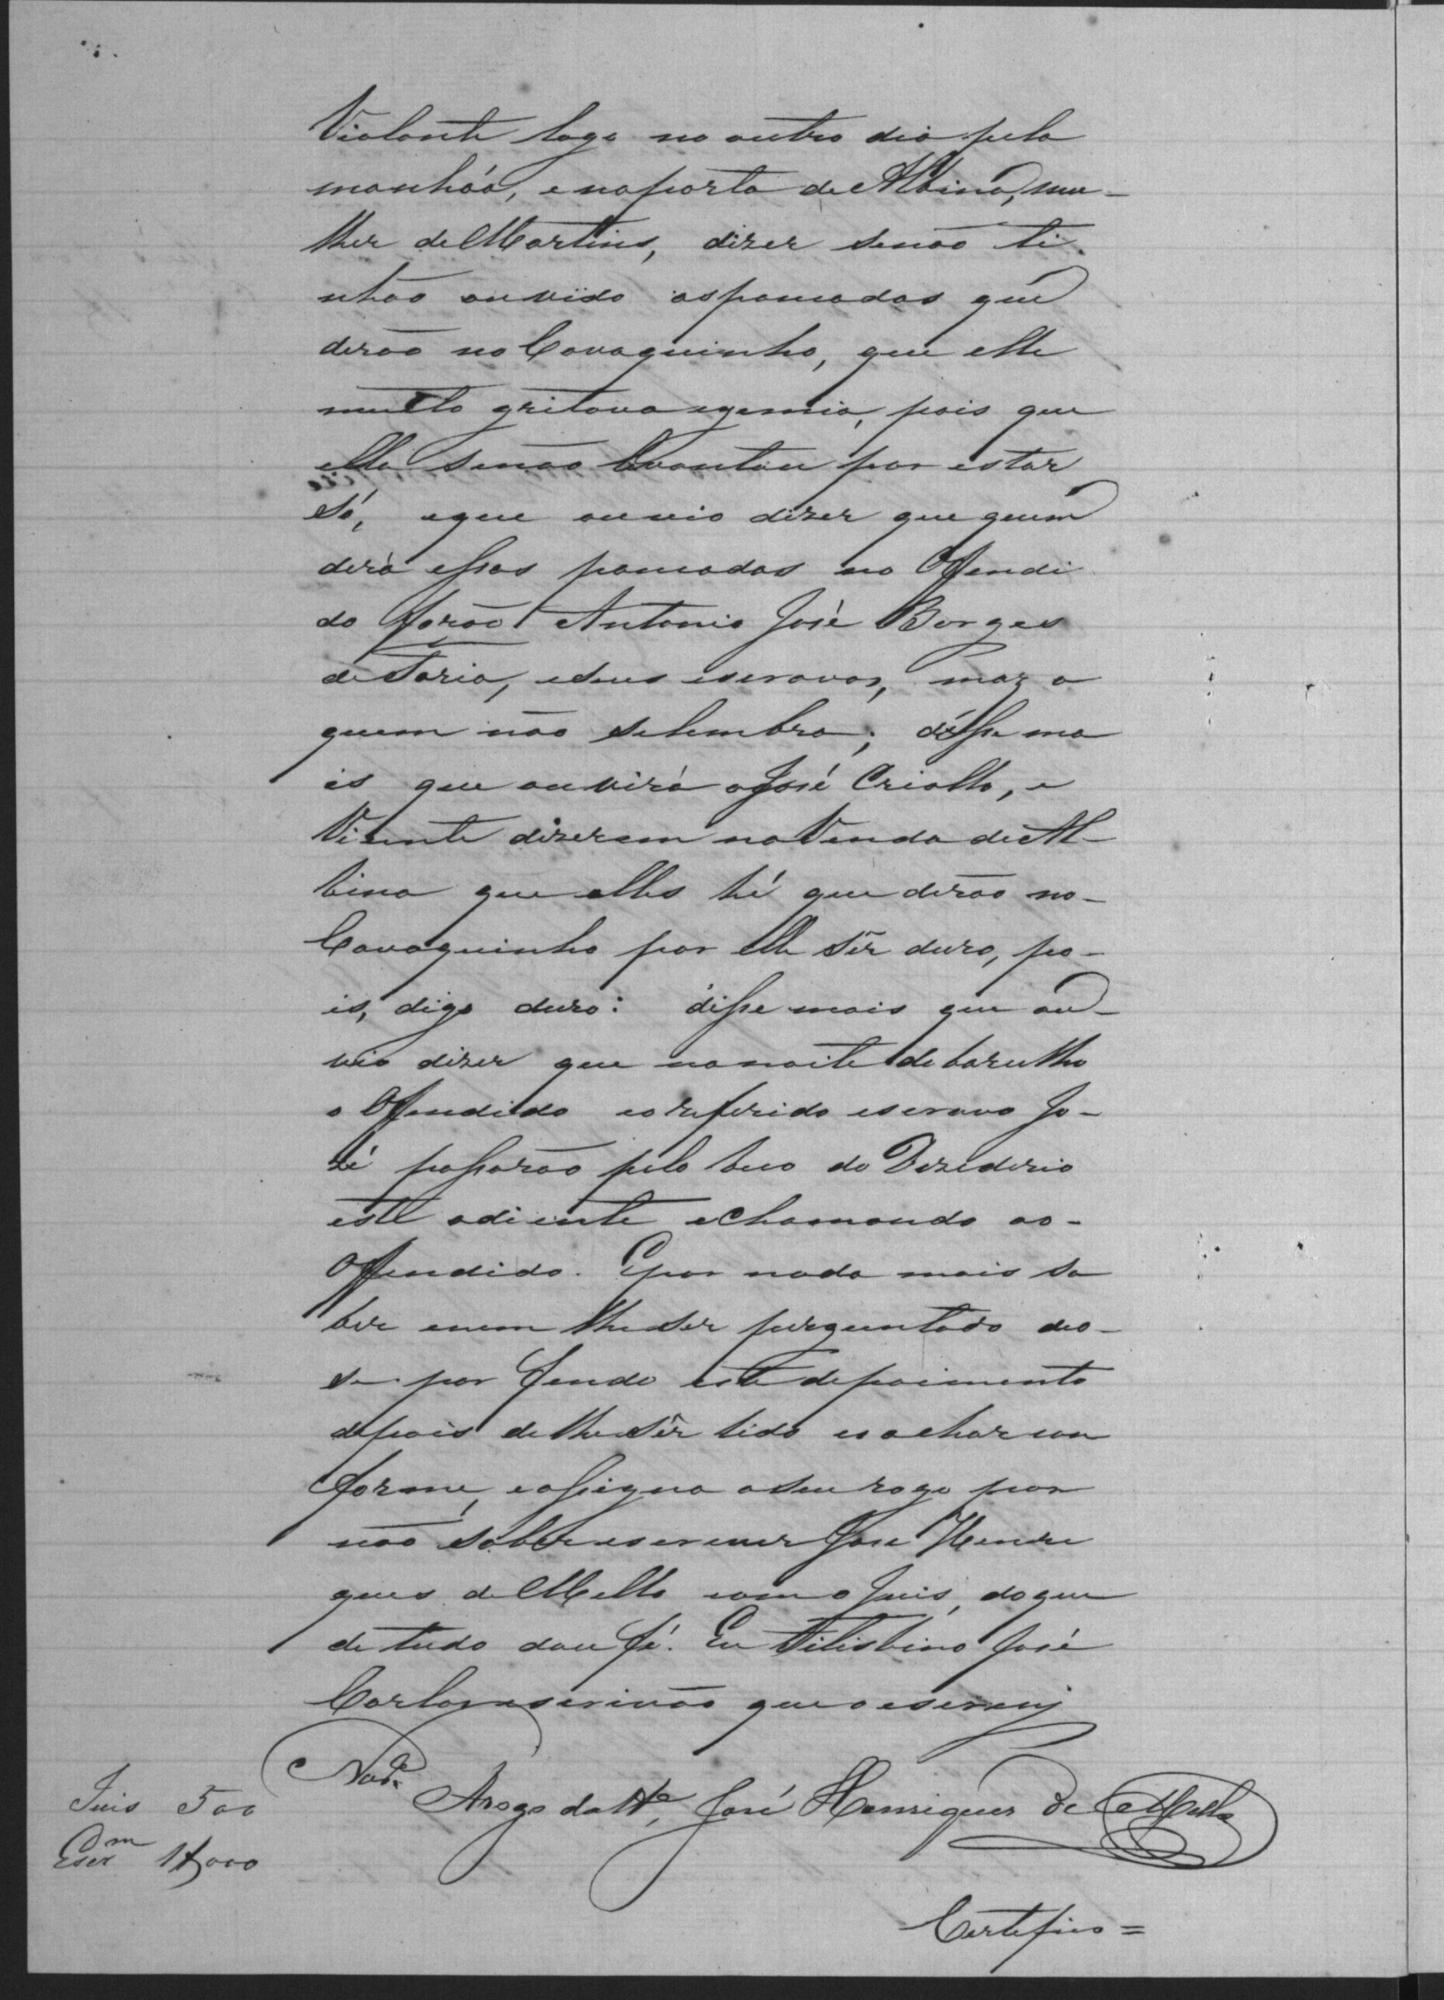 Violante logo no outro dia pela
manhãa, e na porta de Albina, mu-
lher de Martins, dizer senão ti
nhão ouvido as pancadas que
derão no Cavaquinho, que elle
muito gritava e gemia, pois que
ella senão levantou por estar
só, e que ouvio dizer que quem
derà essas pancadas no Offendi
do forão Antonio José Borges
de Faria, e seus escravos, maz a
quem não se lembra; disse ma
is que ouvirà a José Criollo, e
Vicente dizerem na Venda de Al-
bina que elles hé que derão no-
Cavaquinho por elle sêr duro, po-
is, digo duro: disse mais que ou-
vio dizer que na noite do barulho
o Offendido e o referido escravo Jo-
zé passarão pelo beco do Dezederio
este adiente e chamando ao-
Offendido. E por nada mais sa
ber e nem lhe ser perguntado deo-
se por findo este depoimento
depois de lhe sêr lido e o achar con
forme, e assigna a seu rogo por
não saber escrever José Henri
ques de Mello com o Juis, do que
de tudo dou fé. Eu Felisbino José
Carlos escrivão que o escrevj
Arogo da Ta, José Henriques de Mello
Juis 500
Escrm 1$000
Certefico =